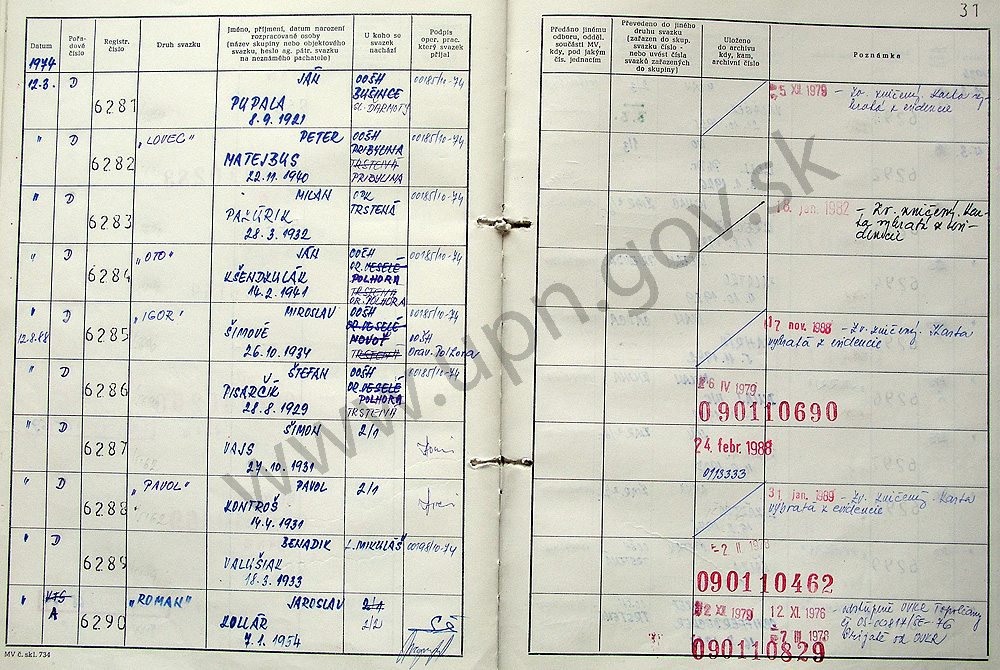 31
Datum
Pořadové číslo
Registr. číslo
Druh svazku
Jméno, příjmení, datum narození
rozpracované osoby
(název skupiny nebo objektového
svazku, heslo ag. pátr. svazku
na neznámého pachatele)
U koho se
svazek
nachází
Podpis
oper. prac.
který svazek
přijal
Předáno jinému
odboru, odděl.
součásti MV,
kdy, pod jakým
čís. jednacím
Převedeno do jiného
druhu svazku
(zařazen do skup.
svazku číslo -
nebo uvést čísla
svazků zařazených
do skupiny)
Uloženo
do archivu
kdy, kam,
archivní číslo
Poznámka
1974
12.3. D 6281
JÁN
PUPALA
8.9.1921
OOŠH
BUŠINCE
SL. ĎARMOTY
00185/10-74
5 XII 1979
" D 6282 „LOVEC"
PETER
MATEJBUS
22.11.1940
OOŠH
PRIBYLINA
TRSTENÁ
PRIBYLINA
00185/10-74
" D 6283
MILAN
PAŽÚRIK
28.3.1932
OPK
TRSTENÁ
00185/10-74
18. jan. 1982
" D 6284 „OTO"
JÁN
KŠENDZULÁK
14.2.1941
OOŠH
OR. VESELÉ
POLHORA
TRSTENÁ
OR. POLHORA
00185/10-74
" D 6285 „IGOR"
12.8.88
MIROSLAV
ŠIMOVE
26.10.1934
OOŠH
OR. VESELÉ
NOVOŤ
TRSTENÁ
00185/10-74
OOŠH
Orav. Polhora
17 nov. 1988 - Zv. zničený. Karta
vybratá z evidencie
" D 6286
ŠTEFAN
PISARČÍK
28.8.1929
OOŠH
OR. VESELÉ
POLHORA
TRSTENÁ
00185/10-74
26 IV 1979
090110690
" D 6287
ŠIMON
VAJS
27.10.1931
2/1
24. febr. 1988
0113333
" D 6288 „PAVOL"
PAVOL
KONTROŠ
14.4.1931
2/1
31 jan. 1989 - Zv. zničený. Karta
vybratá z evidencie
" D 6289
BENADIK
VALUŠIAK
18.3.1933
L. MIKULÁŠ
00198/10-74
-2 II 1978
090110462
" A 6290 „ROMAN"
JAROSLAV
KOLLÁR
7.1.1954
2/1
2/2
12 XI 1976
090110829
MV č. skl. 734
www.upn.gov.sk